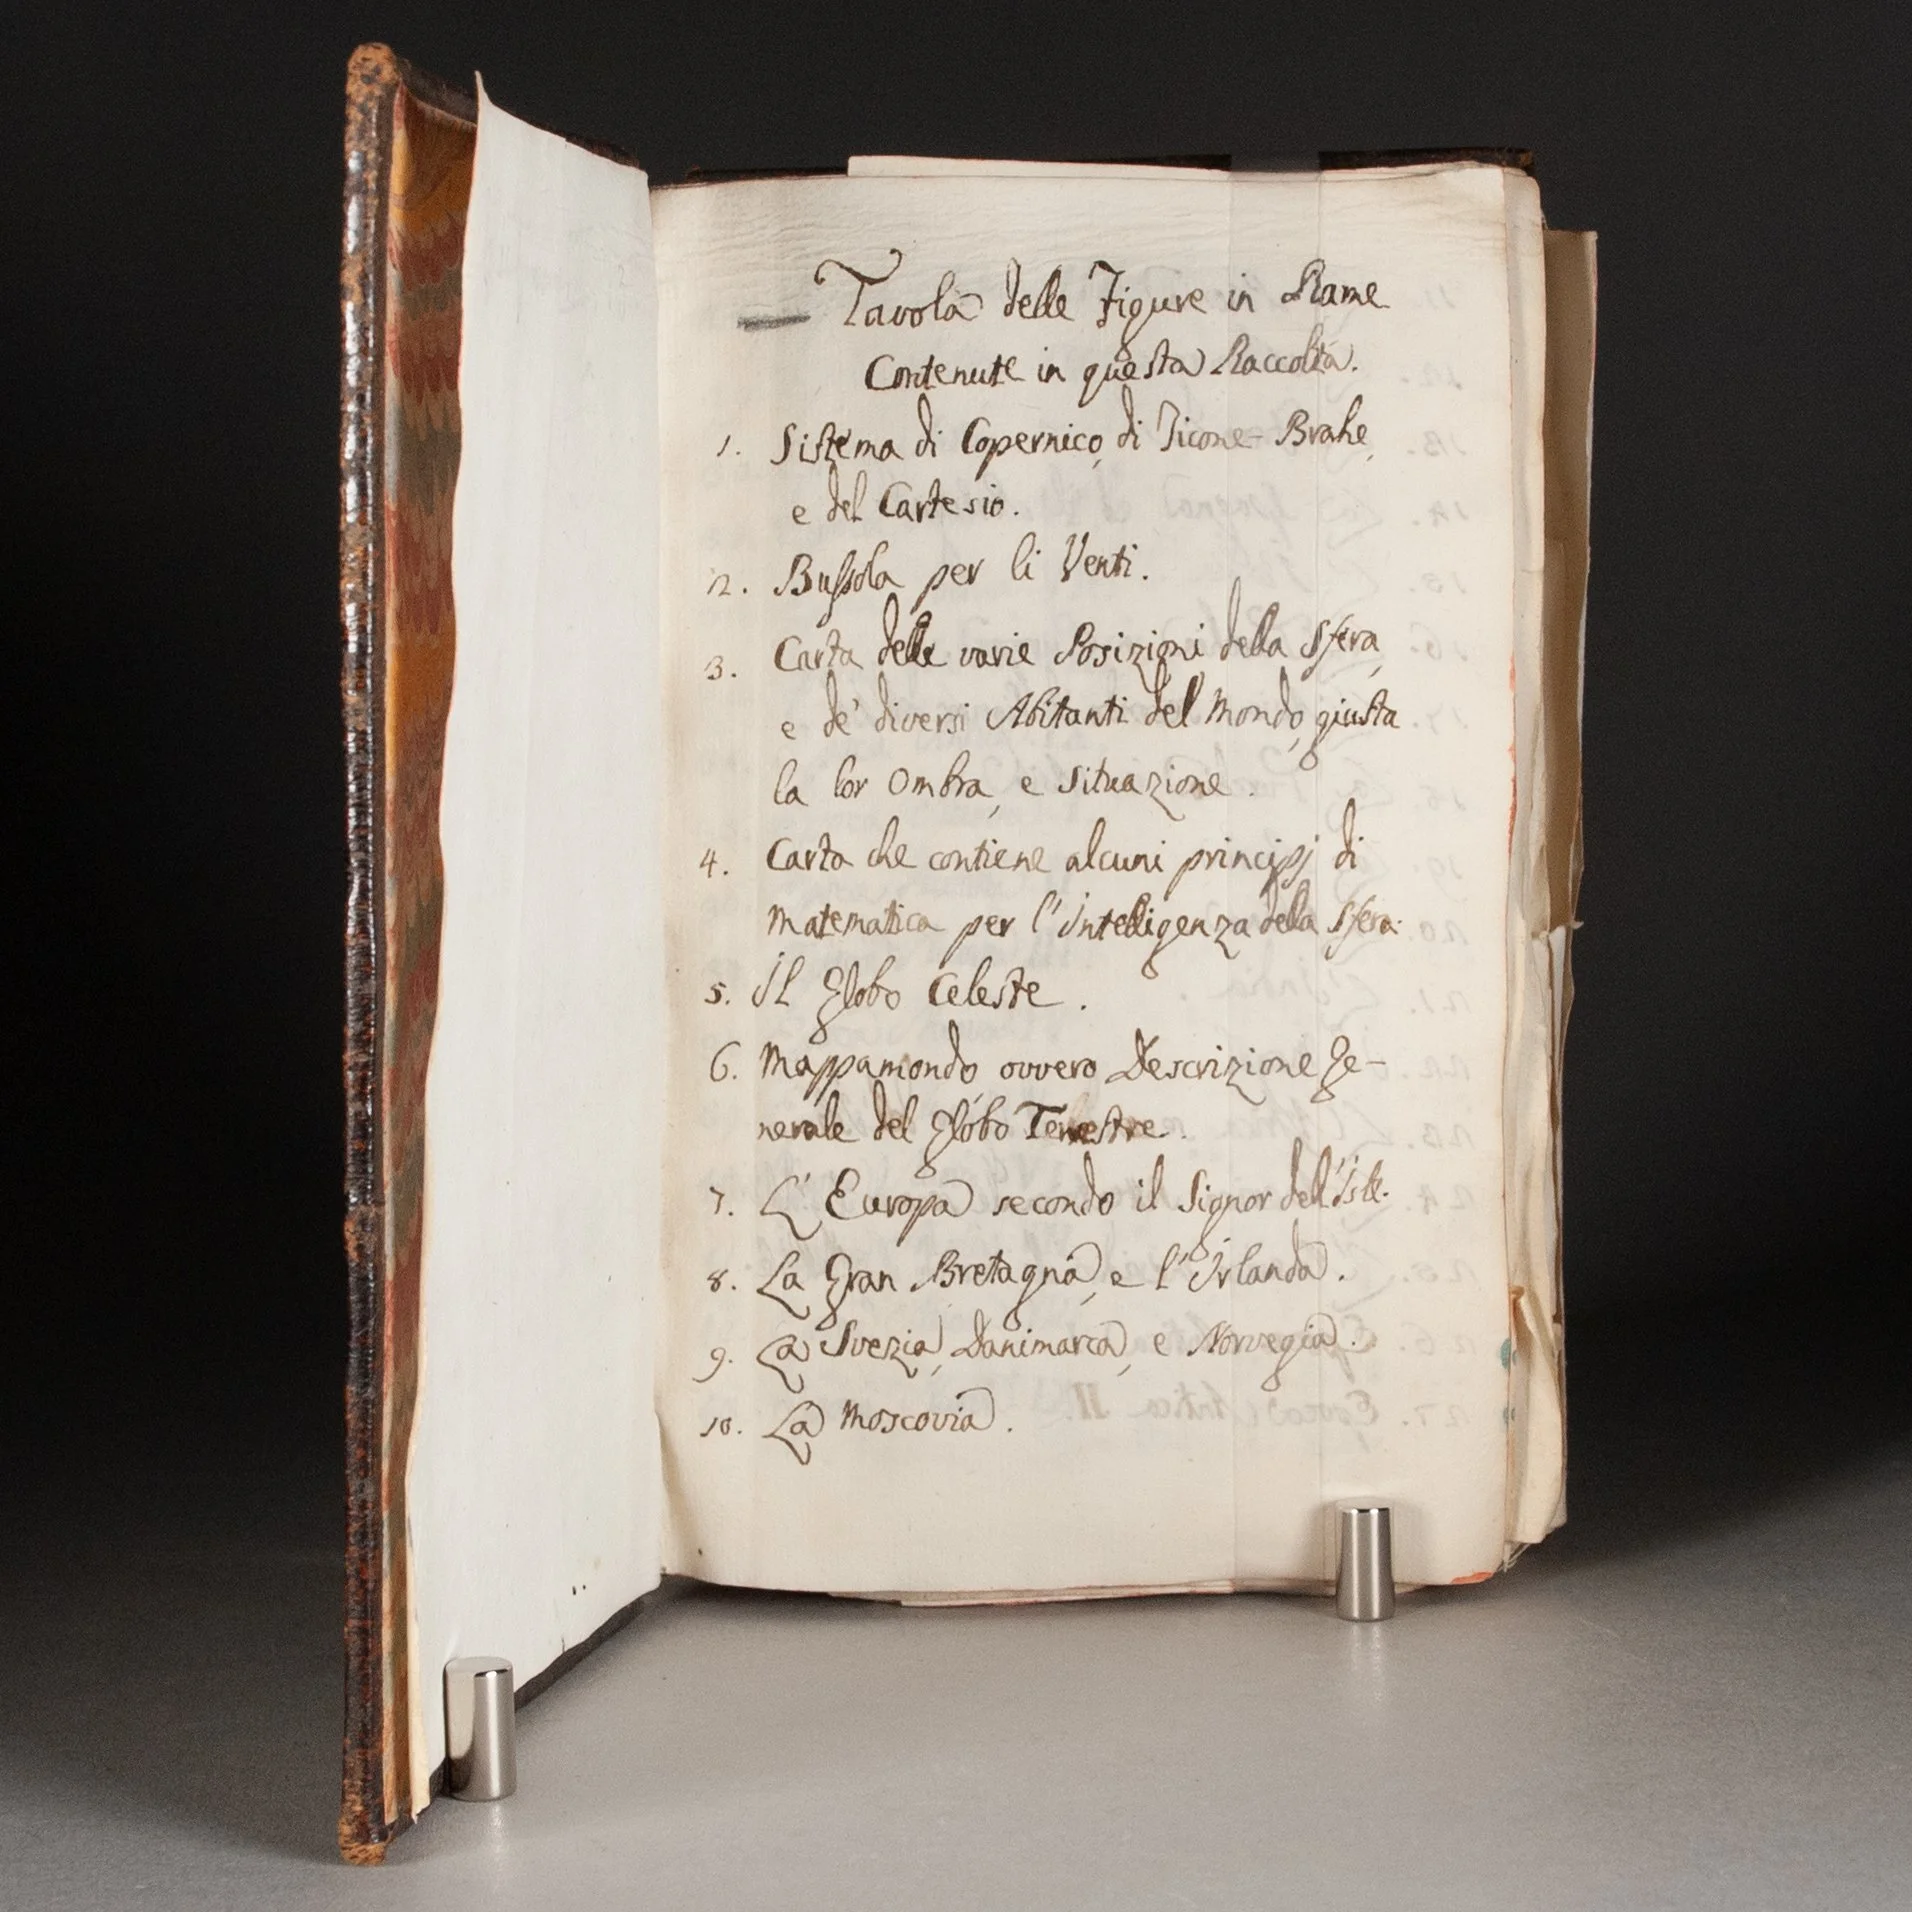 Tavola delle Figure in Rame
Contenute in questa Raccolta.
1. Sistema di Copernico, di Ticone-Brahe,
e del Cartesio.
2. Bussola per li Venti.
3. Carta delle varie Posizioni della Sfera,
e de' diversi Abitanti del Mondo, giusta
la lor Ombra, e Situazione.
4. Carta che contiene alcuni principj di
Matematica per l'Intelligenza della Sfera.
5. Il Globo Celeste.
6. Mappamondo ovvero Descrizione Ge-
nerale del Globo Terrestre.
7. L'Europa secondo il Signor dell'Isle.
8. La Gran Bretagna, e l'Irlanda.
9. La Svezia, Danimarca, e Norvegia.
10. La Moscovia.